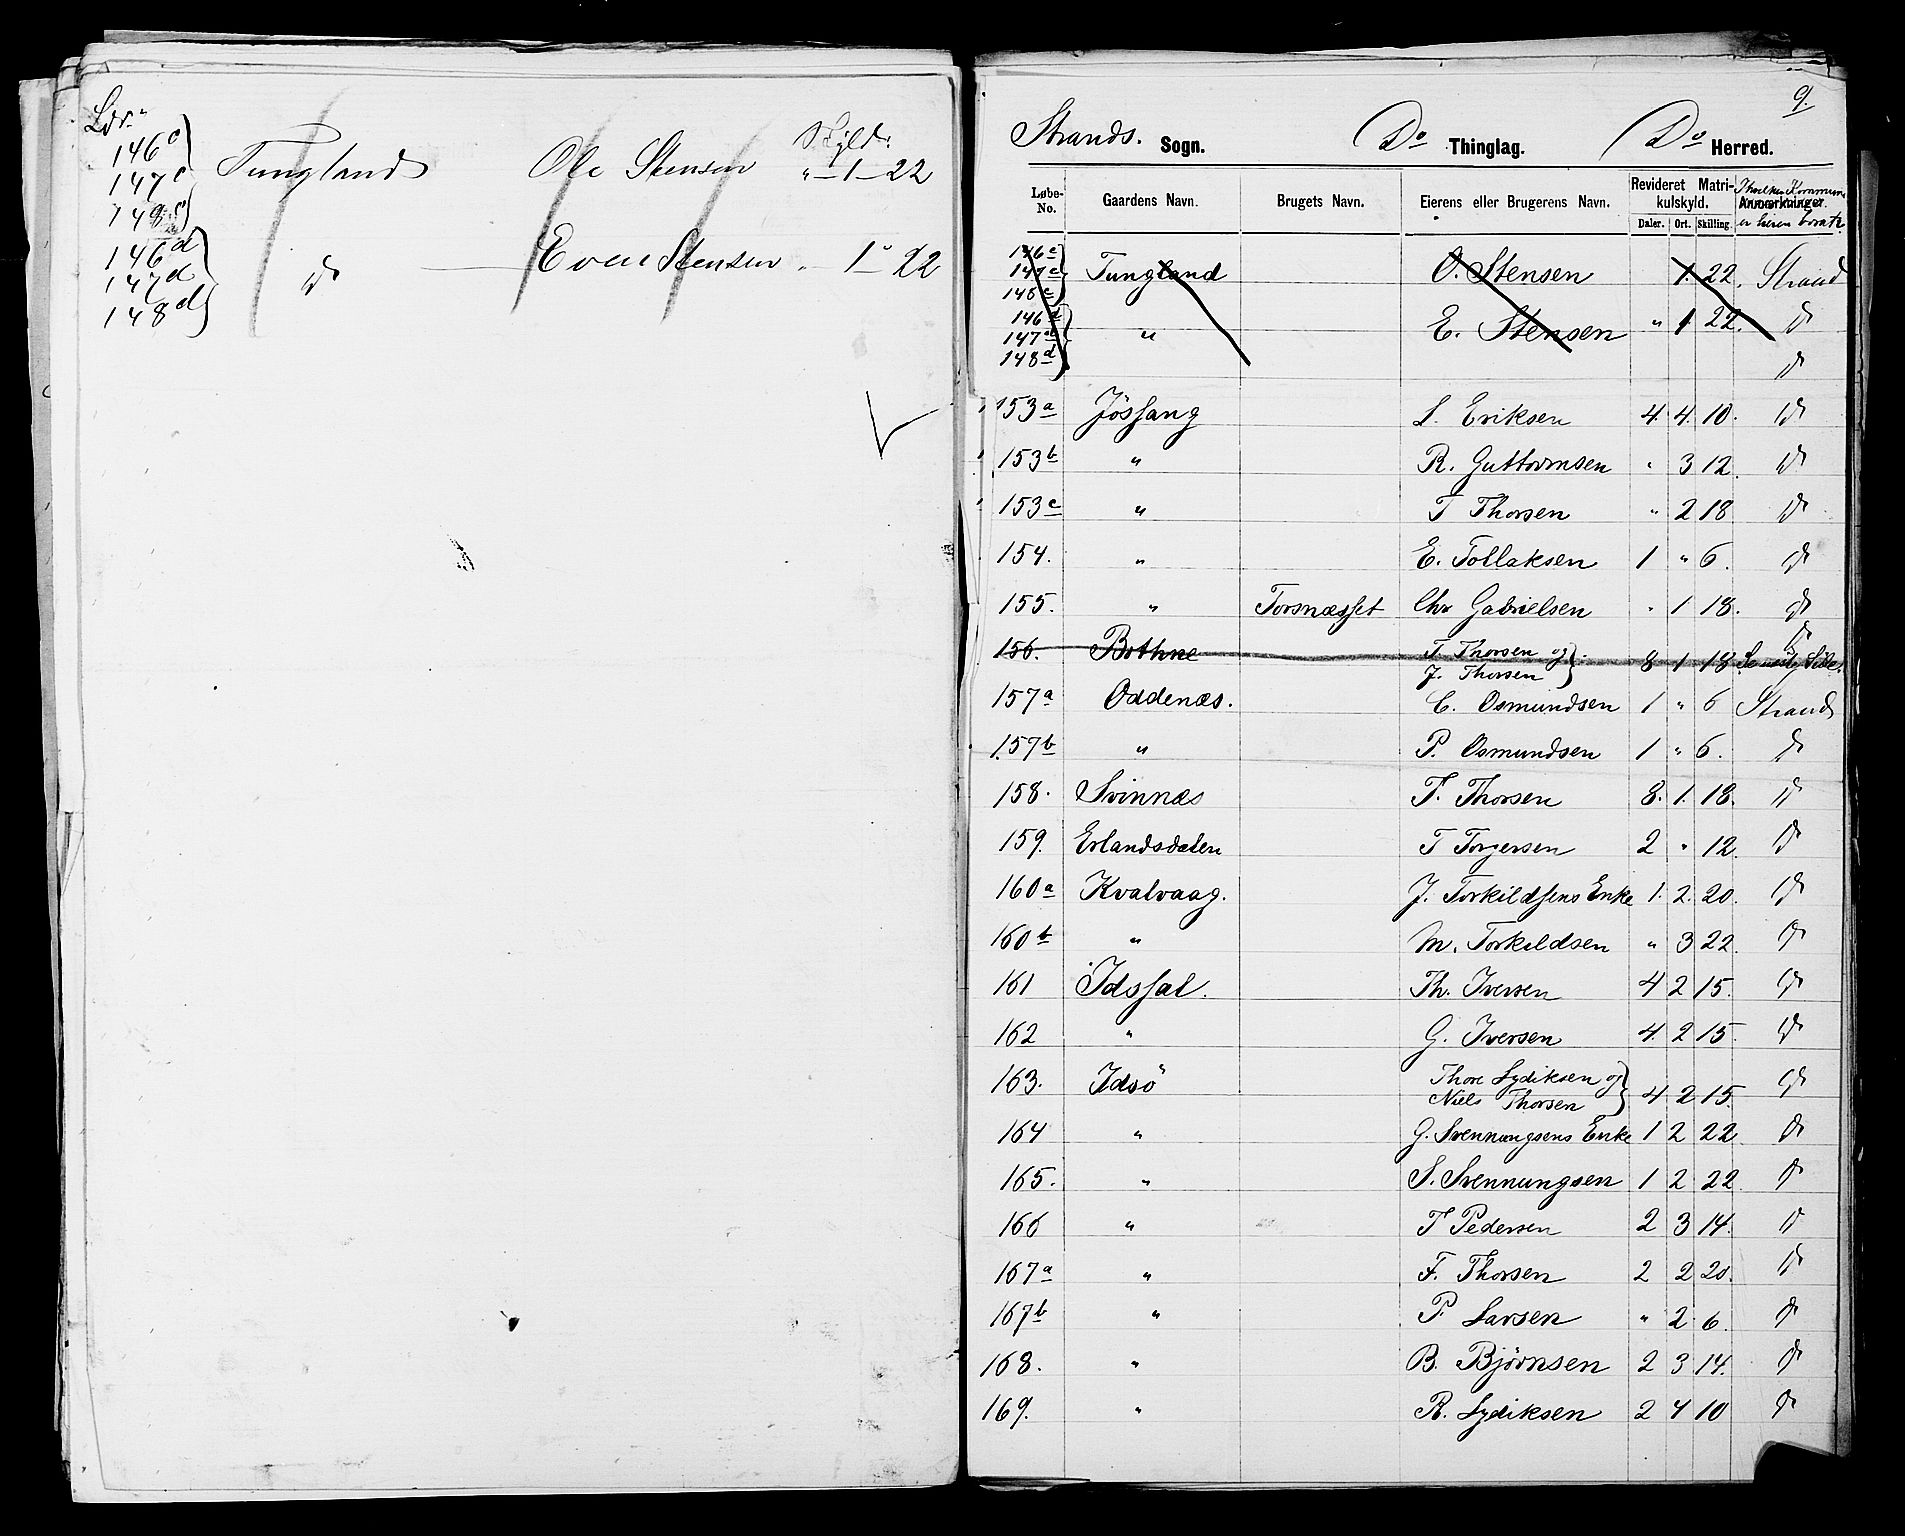 Lbr.
146c
147c } Tungland Ole Stensen Skyld: " - 1 - 22
148c
146d
147d } do Even Stensen " 1 " 22
148d
9.
Strands. Sogn. Do Thinglag. Do Herred.
Løbe-No. Gaardens Navn. Brugets Navn. Eierens eller Brugerens Navn. Revideret Matrikulskyld. Daler. Ort. Skilling. Anmerkninger.
146c
147c } Tungland O. Stensen 1. 22. Strand
148c
146d
147d } " E. Stensen " 1. 22. do
148d do
153a Jössang S. Eriksen 4. 4. 10. do
153b " R. Guttormsen " 3 12. do
153c " T Thorsen " 2 18 do
154. " E. Tollaksen 1 " 6. do
155. " Torsnæsset Chr Gabrielsen " 1 18. do
156. Bothne T. Thorsen og J. Thorsen } 8 1 18 do
157a Oddenæs. C. Osmundsen 1 " 6 Strand
157b " P. Osmundsen 1 " 6. do
158. Svinnæs T. Thorsen 8. 1. 18. do
159. Erlandsdalen T Torgersen 2 " 12. do
160a Kvalvaag. J. Torkildsens Enke 1. 2. 20. do
160b " M. Torkildsen " 3 22. do
161 Idssal. Th. Iversen 4 2 15. do
162 " G. Iversen 4. 2 15. do
163. Idsö Thore Lydiksen og Niels Thorsen } 4 2 15. do
164 " G. Svennungsens Enke 1 2 22 do
165. " S. Svennungsen 1 2 22. do
166 " T Pedersen 2 3 14. do
167a " F. Thorsen 2 2 20. do
167b " P Larsen " 2 6. do
168. " B. Björnsen 2 3 14. do
169. " R. Lydiksen 2 4 10 do